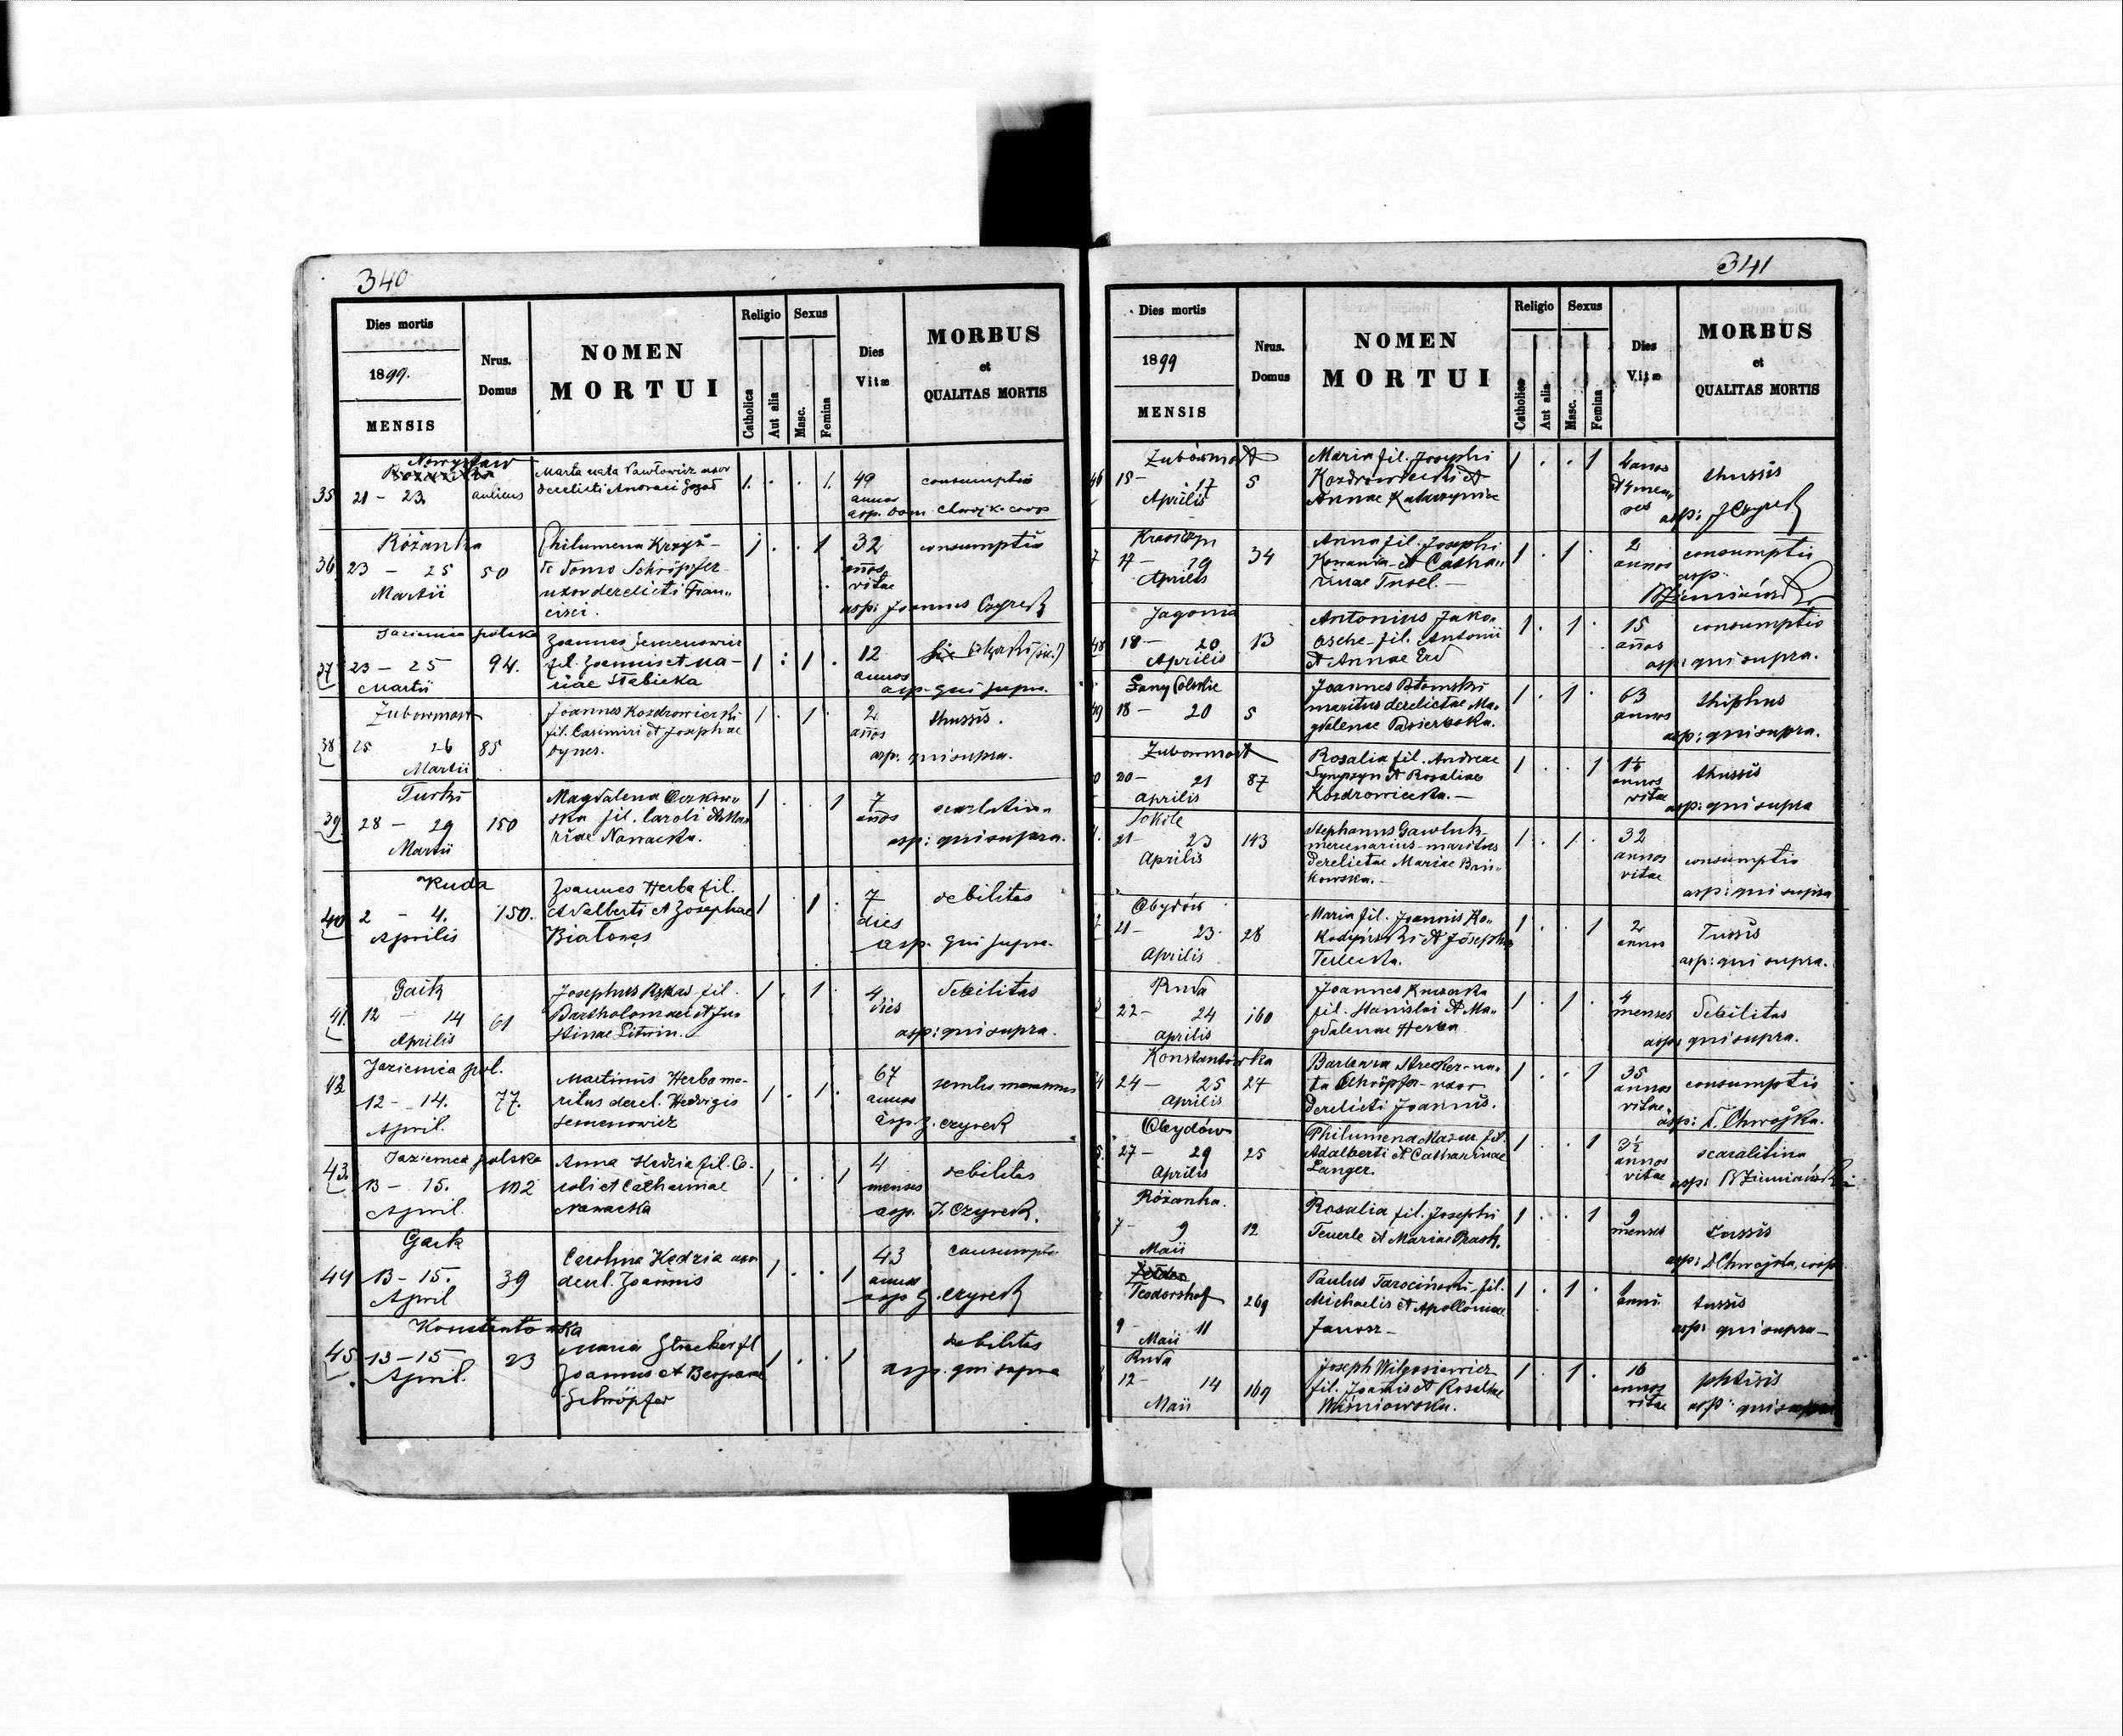 340
Dies mortis
1899.
MENSIS
Nrus. Domus
NOMEN MORTUI
Religio
Catholica
Aut alia
Sexus
Masc.
Femina
Dies Vitæ
MORBUS et QUALITAS MORTIS
Nowystaw
35 21 - 23 aulicus
Marta nata Pawłowicz uxor
derelicti Andreae
1 . . 1.
49 annos
consumptio
asp. Dom. Chwojka coop
Różanka
36 23 - 25 Martii 50
Philumena Krzyż-
de domo Schröpfer
uxor derelicti Fran„
cisci.
1 . . 1
32 annos vitae
consumptio
asp: Joannes Czyrek
Jazienica polska
37 23 - 25 Martii 94.
Joannes Semenowicz
fil. Joannis et Ma-
riae Stabicka
1 : 1 .
12 annos
(sic!)
asp. qui supra.
Zubowmost
38 25 26 Martii 85
Joannes Kozdrowiecki
fil. Casimiri et Josephae
1 . 1 .
2 años
thussis.
asp. qui supra.
Turki
39 28 - 29 Martii 150
Magdalena Oczkow„
ska fil. Caroli et Ma„
riae Nawacka.
1 . . 1
7 años
scarlatina
asp: qui supra.
Ruda
40 2 - 4. Aprilis 150.
Joannes Herba fil.
Adalberti et Josephae
Białowąs
1 . 1 .
7 dies
debilitas
asp. qui supra.
Gaik
41. 12 - 14 Aprilis 61
Josephus fil.
Bartholomaei et Ju„
stinae Litwin.
1 . 1 .
4 dies
debilitas
asp: qui supra.
Jazienica pol.
42 12 - 14. April. 77.
Martinus Herba ma-
ritus derel. Hedvigis
Semenowicz
1 . 1 .
67 annos
asp. J. Czyrek
Jazienica polska
43. 13 - 15. April. 102
Anna Kędzia fil. Ca-
roli et Catharinae
Nawacka
1 . . 1
4 menses
debilitas
asp. J. Czyrek.
Gaik
44 13 - 15. April 39
Carolina Kędzia uxor
derel. Joannis
1 . . 1
43 annos
consumptio
asp J. Czyrek
Konstantówka
45. 13 - 15 April. 23
Maria Strecker fil
Joannis et Barbarae
Schröpfer
1 . . 1
debilitas
asp. qui supra
341
Dies mortis
1899
MENSIS
Nrus. Domus
NOMEN MORTUI
Religio
Catholica
Aut alia
Sexus
Masc.
Femina
Dies Vitæ
MORBUS et QUALITAS MORTIS
Zubówmost
46 15 - 17 Aprilis 5
Maria fil. Josephi
Kozdrowiecki et
Annae Katarzyniec
1 . . 1
thussis
asp: J Czyrek
7 17 - 19 Aprilis 34
Anna fil. Josephi
et Catha„
rinae Insel.-
1 . 1 .
2 annos
consumptio
asp.
Jagonia
48 18 - 20 Aprilis 13
Antonius Jako„
sche fil. Antonii
et Annae Erd
1 . 1 .
15 años
consumptio
asp: qui supra.
Łany Polskie
49 18 - 20 5
Joannes Błomski
maritus derelictae Ma„
gdalenae Pasierbska.
1 . 1 .
63 annos
thiphus
asp: qui supra.
Zubowmost
0 20 - 21 Aprilis 87
Rosalia fil. Andreae
et Rosaliae
Kozdrowiecka.-
1 . . 1
1½ annos vitae
thussis
asp: qui supra
Sokole
1. 21 - 23 Aprilis 143
Stephanus Gawluk
mercenarius - maritus
derelictae Mariae Brni„
kowska.-
1 . 1 .
32 annos vitae
consumptio
asp: qui supra
Obydów
2 21 - 23 Aprilis 28
Maria fil. Joannis Ko„
et Josepha
Terlecka.
1 . . 1
2 annos
Tussis
asp: qui supra.
Ruda
3 22 - 24 Aprilis 160
Joannes
fil. Stanislai et Ma„
gdalenae Herba
1 . 1 .
4 menses
debilitas
asp: qui supra.
Konstantówka
4 24 - 25 Aprilis 27
Barbara Strecker - na„
ta Schröpfer - uxor
derelicti Joannis.
1 . . 1
35 annos vitae.
consumptio
asp: D. Chwojka.
Obydów
5. 27 - 29 Aprilis 25
Philumena Mazur fil.
Adalberti et Catharinae
Langer.
1 . . 1
3½ annos vitae
scaralitina
asp:
Różanka.
7 - 9 Maii 12
Rosalia fil. Josephi
Teuerle et Mariae Prash.
1 . . 1
9 menses
tussis
asp: D Chwojka, coop
Teodorshof
9 - 11 Maii 269
Paulus Tarociński fil.
Michaelis et Apolloniae
Janosz -
1 . 1 .
tussis
asp: qui supra -
Ruda
12 - 14 Maii 169
Joseph Wilgosiewicz
fil. Joannis et Rosaliae
Wiśniowska.
1 . 1 .
16 annos vitae
phtisis
asp: qui supra